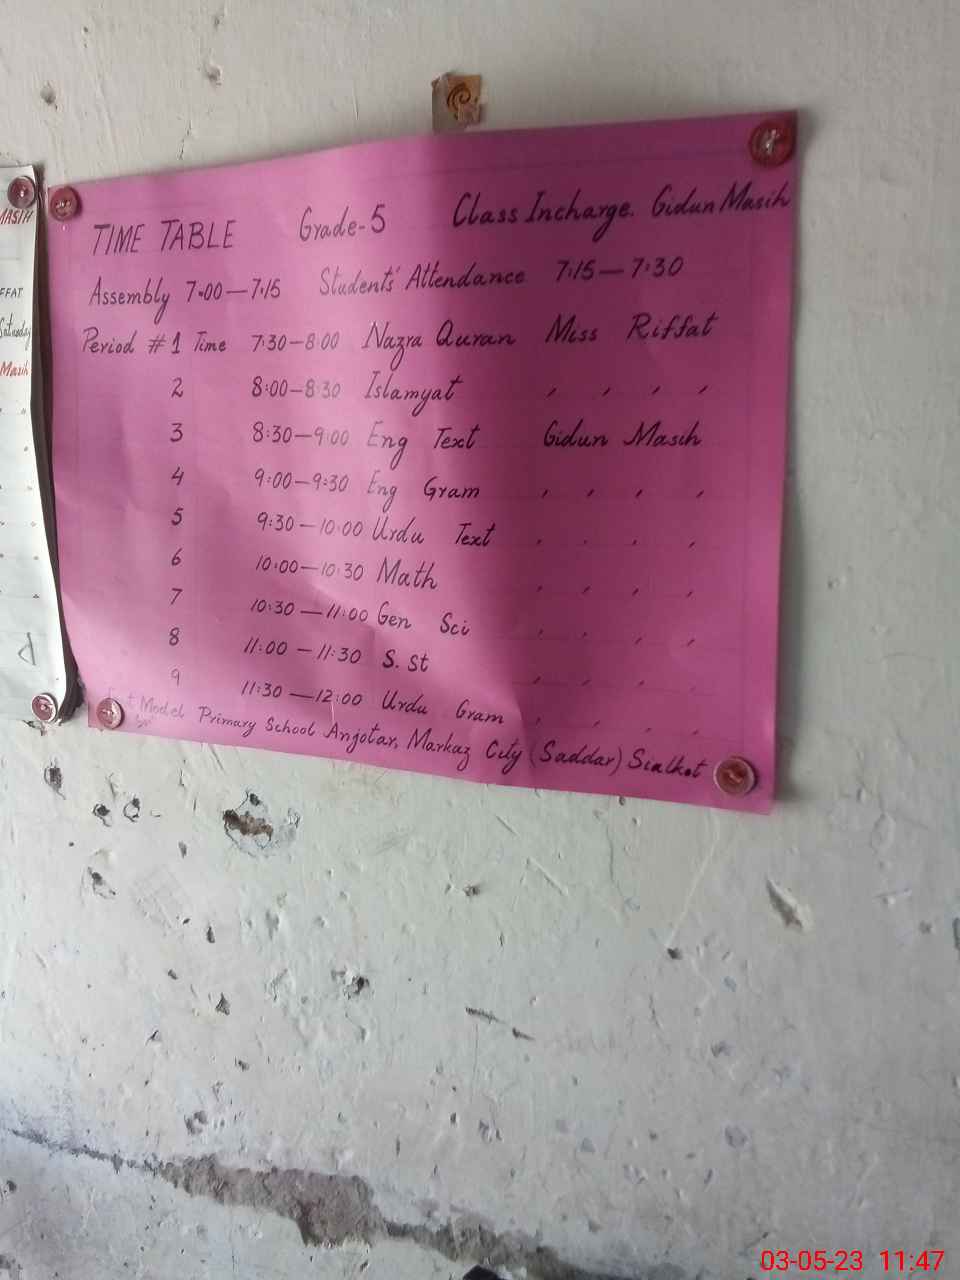 TIME TABLE Grade-5 Class Incharge. Gidun Masih
Assembly 7:00—7:15 Students' Attendance 7:15—7:30
Period #1 Time 7:30-8:00 Nazra Quran Miss Riffat
2 8:00-8:30 Islamyat , , , ,
3 8:30-9:00 Eng Text Gidun Masih
4 9:00-9:30 Eng Gram , , , ,
5 9:30—10:00 Urdu Text , , , ,
6 10:00—10:30 Math , , , ,
7 10:30—11:00 Gen Sci , , , ,
8 11:00—11:30 S. st , , , ,
9 11:30—12:00 Urdu Gram , , , ,
Model Primary School Anjotar, Markaz City (Saddar) Sialkot
MASIH
FFAT
Saturday
Masih
03-05-23 11:47